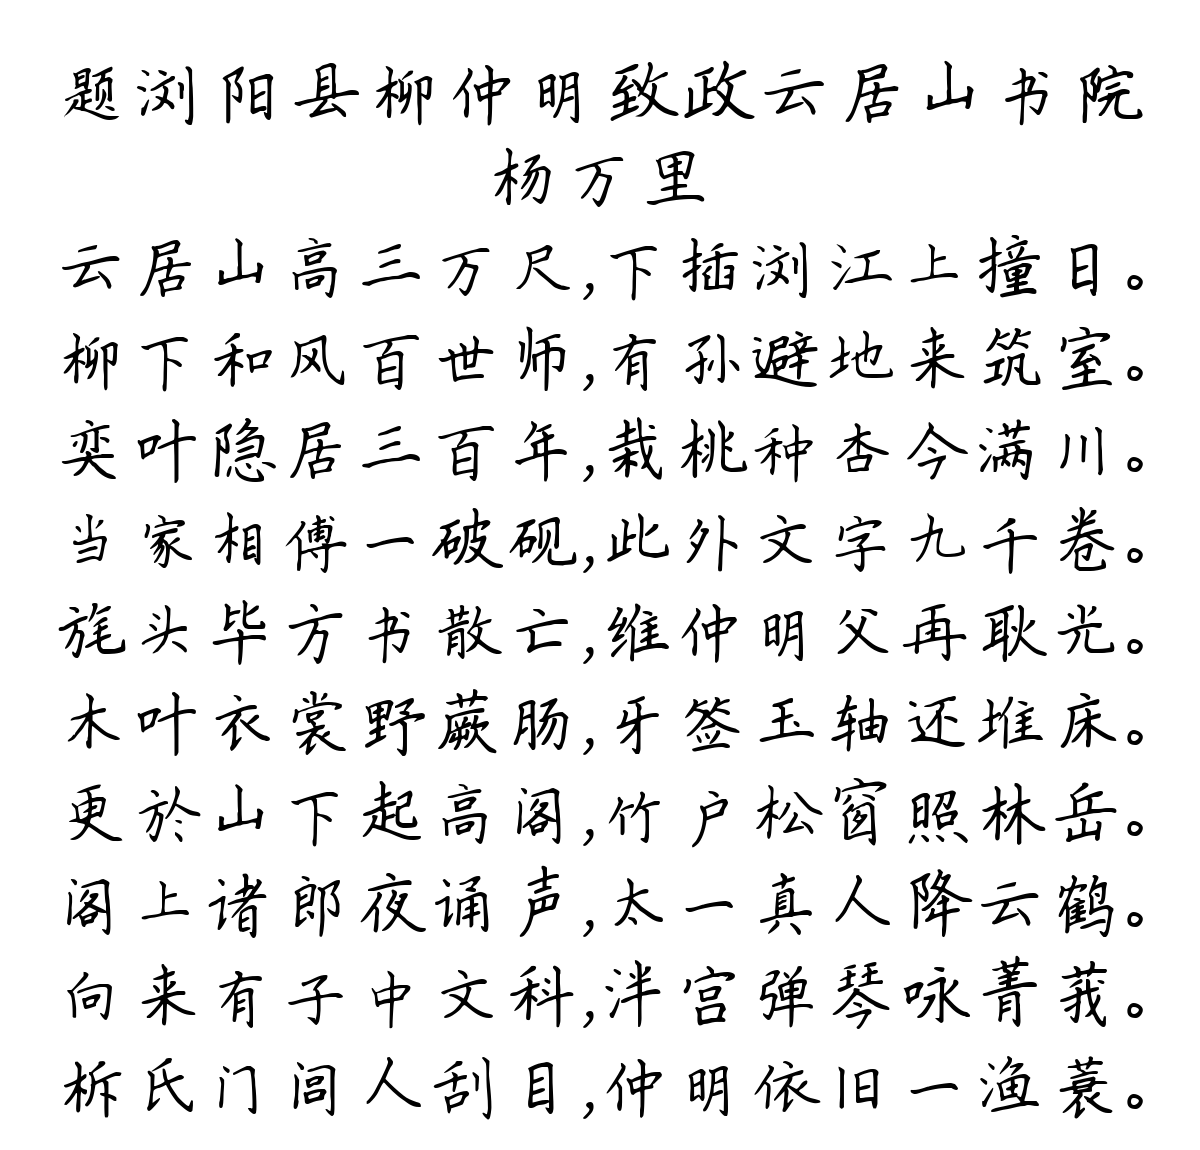 题浏阳县柳仲明致政云居山书院
杨万里
云居山高三万尺,下插浏江上撞日。
柳下和风百世师,有孙避地来筑室。
奕叶隐居三百年,栽桃种杏今满川。
当家相傅一破砚,此外文字九千卷。
旄头毕方书散亡,维仲明父再耿光。
木叶衣裳野蕨肠,牙签玉轴还堆床。
更於山下起高阁,竹户松窗照林岳。
阁上诸郎夜诵声,太一真人降云鹤。
向来有子中文科,泮宫弹琴咏菁莪。
柝氏门闾人刮目,仲明依旧一渔蓑。